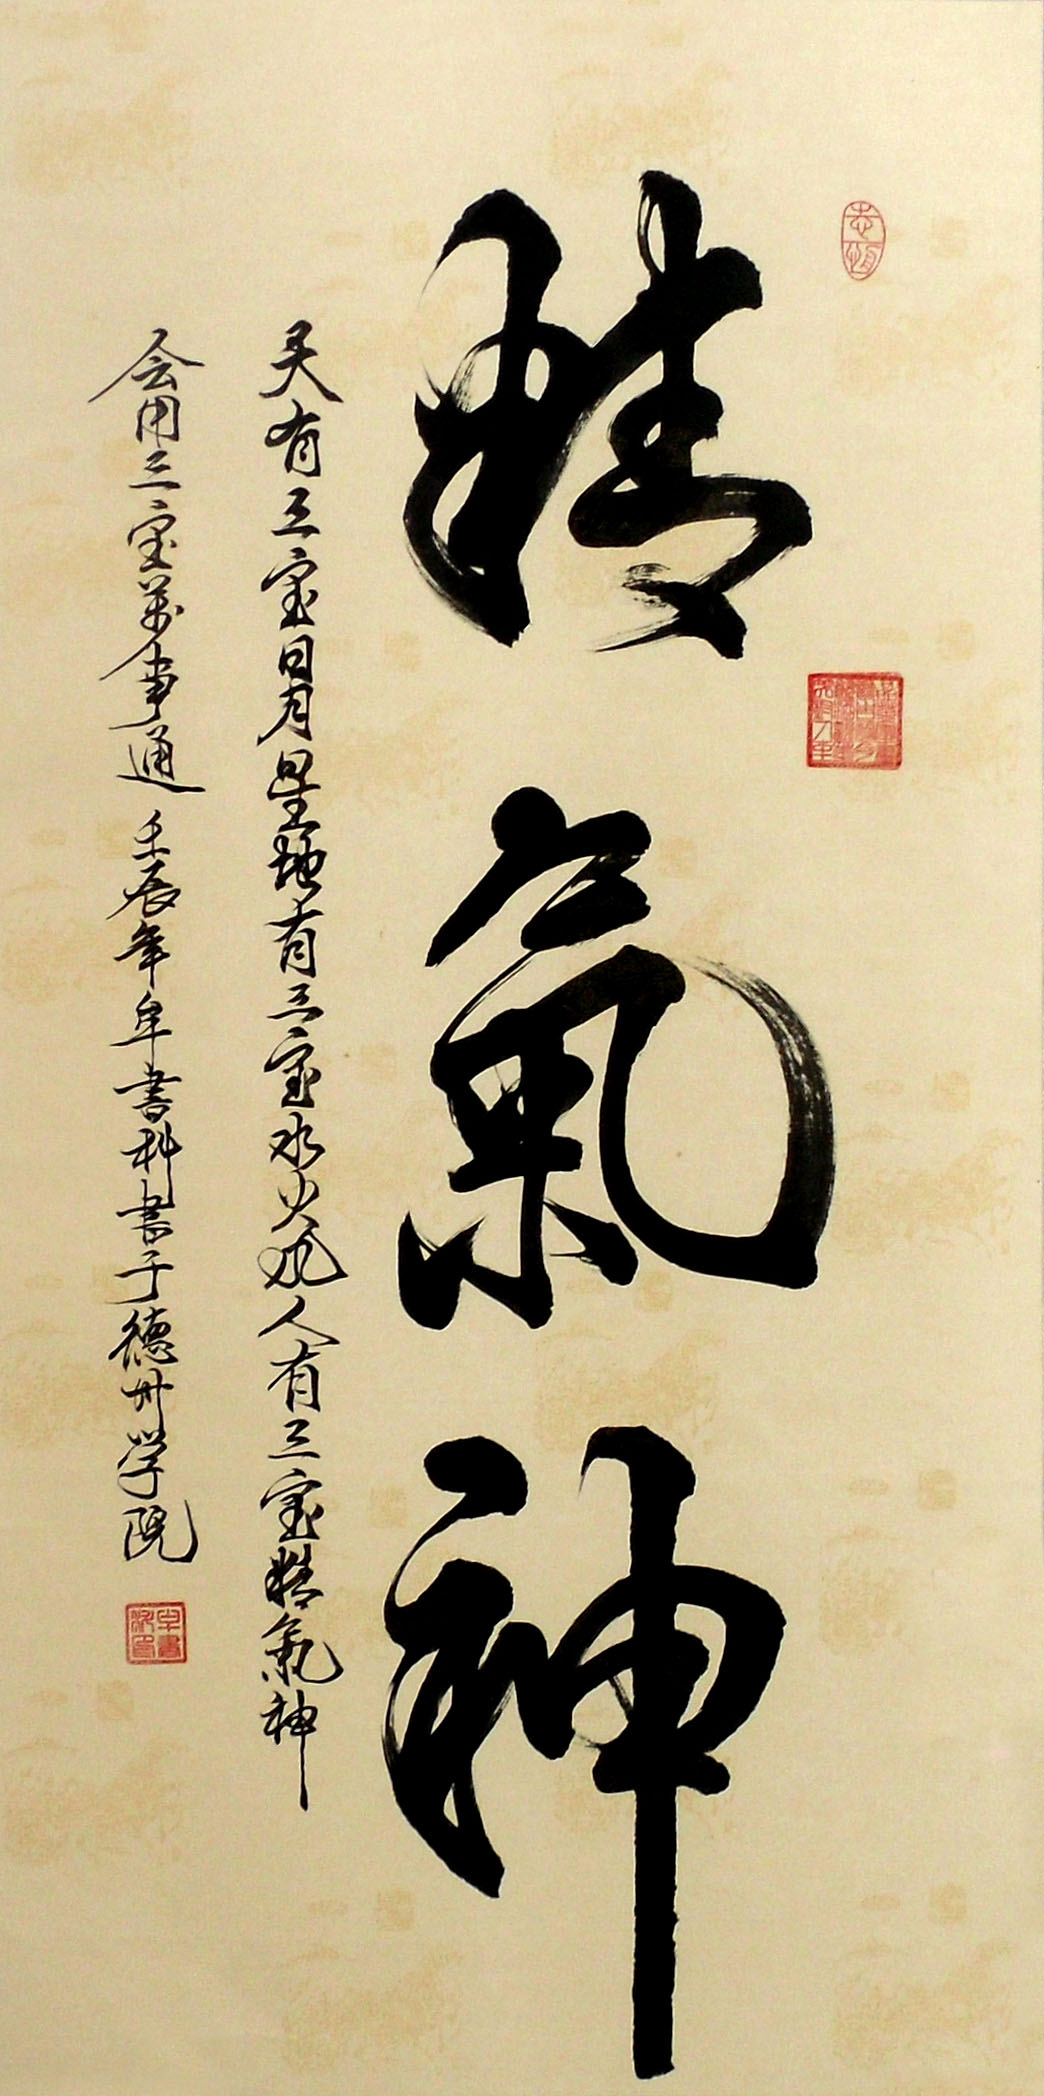 精氣神
天有三宝日月星地有三宝水火風人有三宝精氣神
会用三宝萬事通 壬辰年牟書科書于德州学院